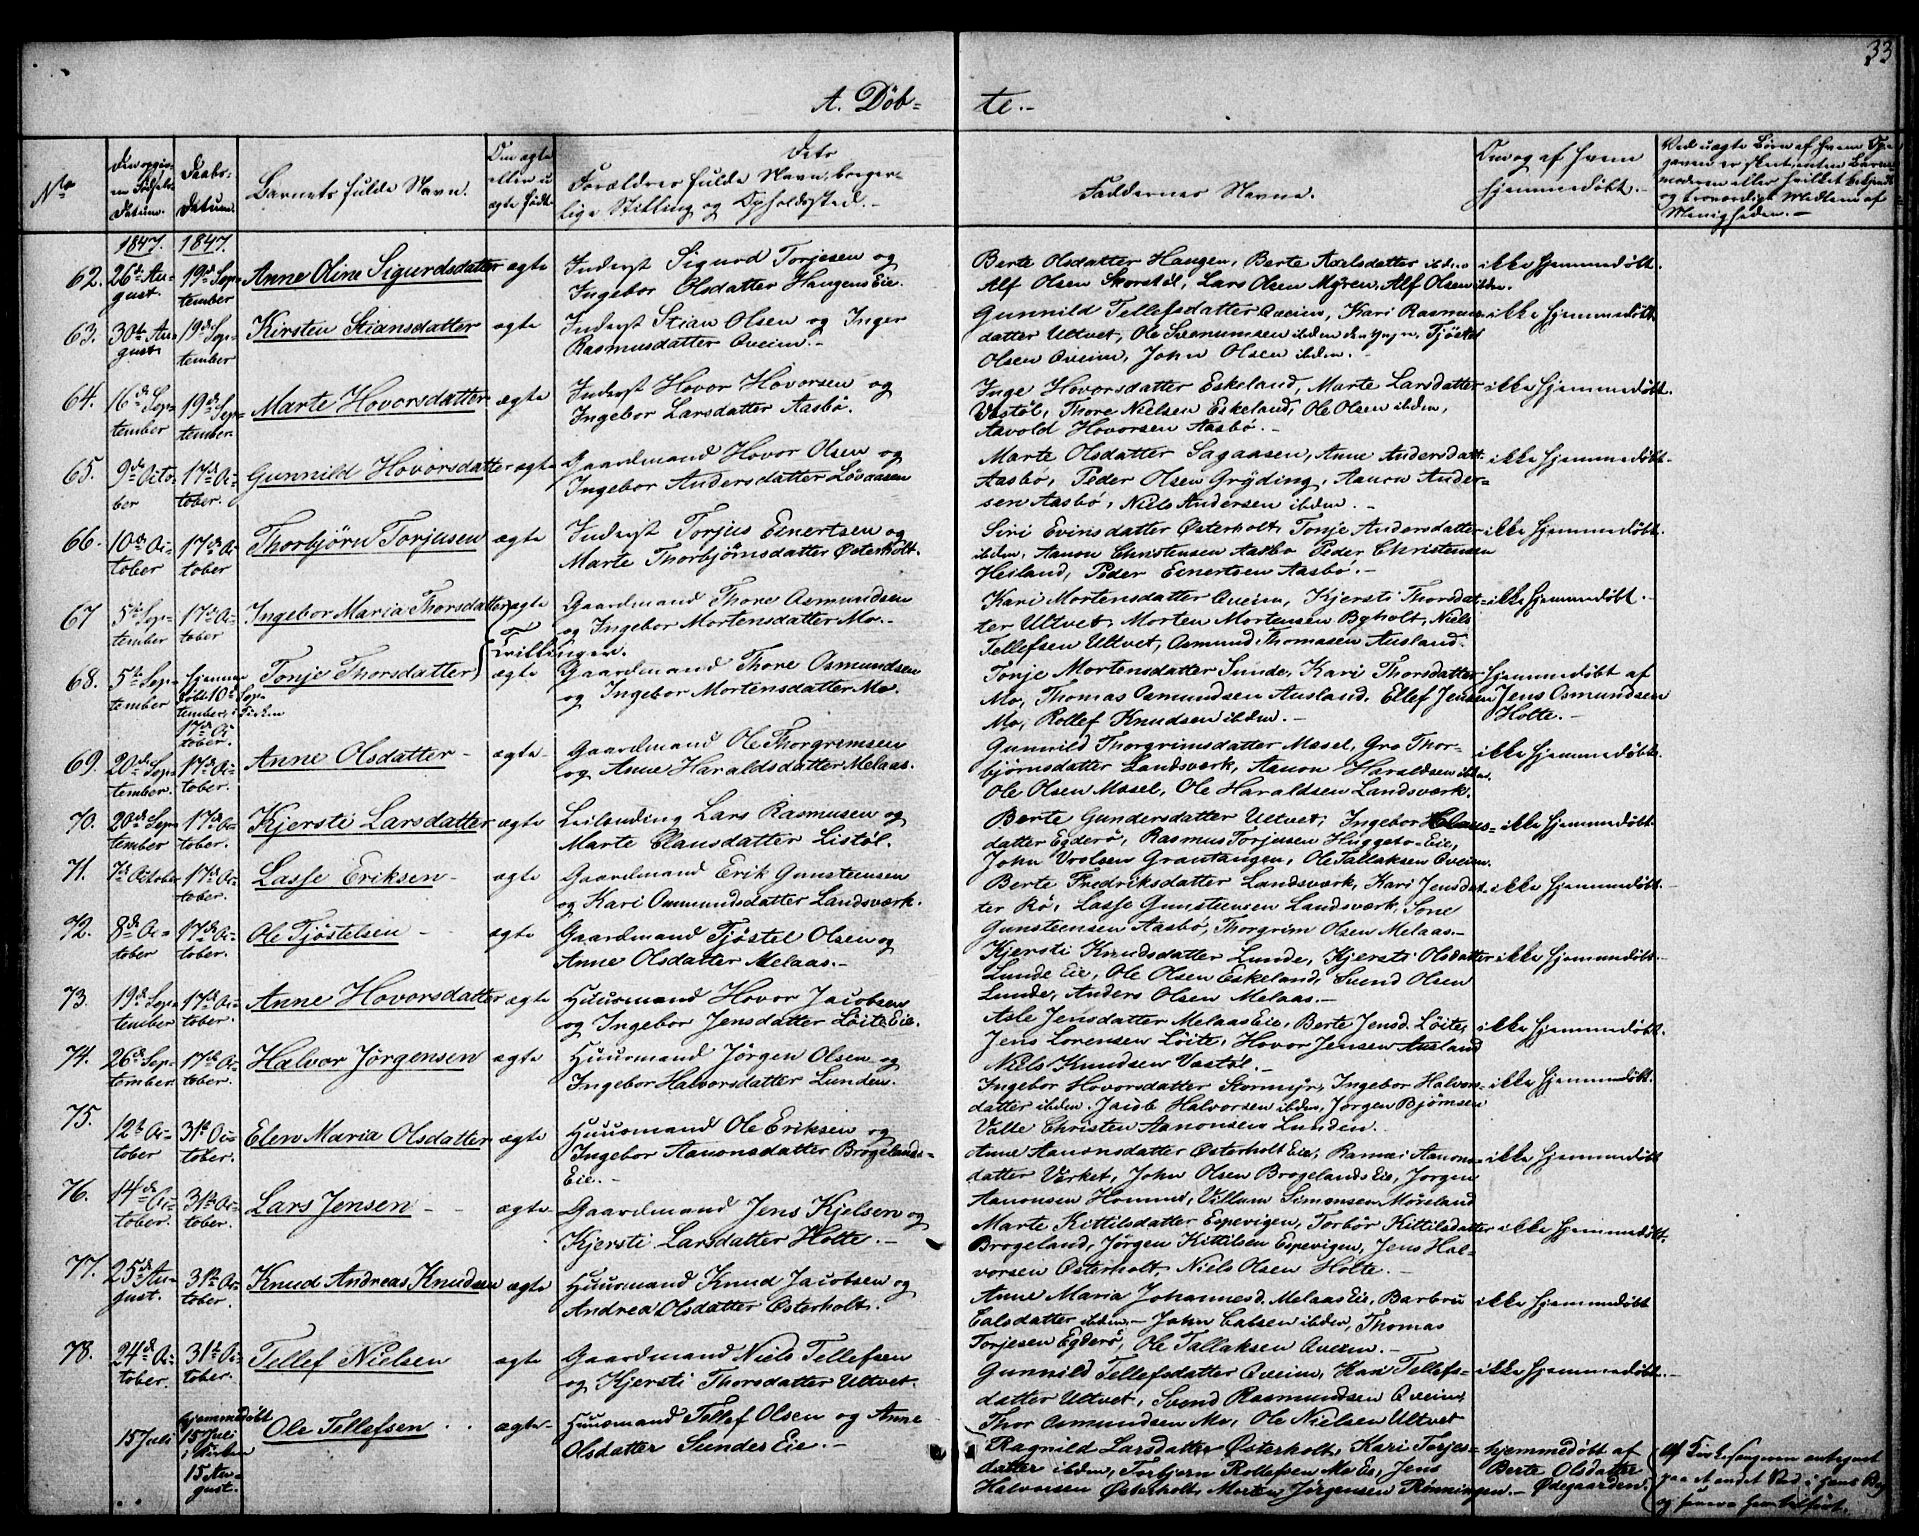 33
A. Døb-
te.-
No
Den opgiv-
ne Fødsels
Datum.
Daabs-
Datum.
Barnets fulde Navn.
Om ægte
eller u-
ægte født
Dets
Forældres fulde Navn, borger-
lige Stilling og Opholdssted.-
Faddernes Navne.
Om og af hvem
hjemmedøbt.-
Ved uægte Børn af hvem Opgaven er skeet, enten Barne-
moderen eller hvilket bekjendt
og troværdigt Medlem af
Menigheden.-
1847. 1847.
62. 26de August. 19de September Anne Oline Sigurdsdatter ægte Inderst Sigurd Torjesen og
Ingebor Olsdatter Haugens Eie.
Berte Olsdatter Haugen, Berte Axelsdatter ibdm ikke hjemmedøbt.
Alf Olsen Skorstøl, Lars Olsen Myren, Alf Olsen ibdm.
63. 30te August 19de September Kirsten Stiansdatter ægte Inderst Stian Olsen og Inger
Rasmusdatter Oveim.-
Gunnild Tellefsdatter Oveim, Kari Rasmus- ikke hjemmedøbt.
datter Ultvet, Ole Rasmusen ibdm den yngr, Tjøstel
Olsen Oveim, John Olsen ibdm.-
64. 16de September 19de September Marte Hovorsdatter ægte Inderst Hovor Hovorsen og
Ingebor Larsdatter Aasbø.
Inge Hovorsdatter Eskeland, Marte Larsdatter ikke hjemmedøbt.
Vastøl, Thore Nielsen Eskeland, Ole Olsen ibdm,
Aavold Hovorsen Aasbø.-
65. 9de October 17de October. Gunnild Hovorsdatter ægte Gaardmand Hovor Olsen og
Ingebor Andersdatter Løvaasen
Marte Olsdatter Sagaasen, Anne Andersdatt. ikke hjemmedøbt.
Aasbø, Peder Olsen Gryding, Aanon Ander-
sen Aasbø, Niels Andersen ibdm.-
66. 10de October 17de October Thorbjørn Torjusen ægte Inderst Torjus Einertsen og
Marte Thorbjørnsdatter Østerholt.
Siri Evinsdatter Østerholt, Tonje Andersdatter ikke hjemmedøbt.
ibdm, Aanon Christensen Aasbø Peder Christensen
Heiland, Peder Einertsen Aasbø.-
67 5te September 17de October Ingebor Maria Thorsdatter ægte Gaardmand Thore Osmundsen
og Ingebor Mortensdatter Mo.-
Tvillinger.
Kari Mortensdatter Oveim, Kjersti Thorsdat- ikke hjemmedøbt.-
ter Ultvet, Morten Mortensen Byholt, Niels
Tellefsen Ultvet, Osmund Thomasen Ausland.
68. 5te September hjemmedøbt 10de September, i Kirken 17de October. Tonje Thorsdatter ægte Gaardmand Thore Osmundsen
og Ingebor Mortensdatter Mo.
Tonje Mortensdatter Sunde, Kari Thorsdatter hjemmedøbt af
Mo, Thomas Osmundsen Ausland, Ellef Jensen Jens Osmundsen
Mo, Rollef Knudsen ibdm.- Holte.-
69. 20de September. 17de October. Anne Olsdatter - ægte- Gaardmand Ole Thorgrimsen
og Anne Haraldsdatter Melaas.
Gunnild Thorgrimsdatter Masel, Gro Thor- ikke hjemmedøbt.
bjørnsdatter Landsværk, Aanon Haraldsen ibdm.
Ole Olsen Masel, Ole Haraldsen Landsværk.
70. 20de September 17de October. Kjersti Larsdatter ægte Leilænding Lars Rasmusen og
Marte Clausdatter Listøl.
Berte Gundersdatter Ultvet, Ingebor Claus- ikke hjemmedøbt.
datter Egderø, Rasmus Torjusen Huggetø-Eie,
John Vrolsen Grantangen, Ole Tallaksen Oveim.
71. 7de October 17de October. Lasse Eriksen- ægte Gaardmand Erik Gunsteensen
og Kari Osmundsdatter Landsværk.
Berte Fredriksdatter Landsværk, Kari Jensdat- ikke hjemmedøbt.-
ter Rø, Lasse Gunsteensen Landsværk, Sone
Gunsteensen Aasbø, Thorgrim Olsen Melaas.-
72. 8de October 17de October. Ole Tjøstelsen - ægte Gaardmand Tjøstel Olsen og
Anne Olsdatter Melaas.-
Kjersti Knudsdatter Lunde, Kjersti Olsdatter ikke hjemmedøbt.-
Lunde Eie, Ole Olsen Eskeland, Svend Olsen
Lunde, Anders Olsen Melaas.-
73. 19de September 17de October. Anne Hovorsdatter ægte Huusmand Hovor Jacobsen
og Ingebor Jensdatter Løite Eie.
Asle Jensdatter Melaas Eie, Berte Jensd. Løite, ikke hjemmedøbt.
Jens Lorensen Løite, Hovor Jensen Ausland
Niels Knudsen Vastøl.
74. 26de September 17de October. Halvor Jørgensen ægte Huusmand Jørgen Olsen og
Ingebor Halvorsdatter Lunden.
Ingebor Hovorsdatter Stormyr, Ingebor Halvors- ikke hjemmedøbt.
datter ibdm. Jacob Halvorsen ibdm, Jørgen Bjørnsen
Valle Christen Aanonsen Lunden.
75. 12te October 31te October. Elen Maria Olsdatter ægte Huusmand Ole Eriksen og
Ingebor Aanonsdatter Brøgelands-
Eie.-
Anne Aanonsdatter Østerholt Eie, Ramæi Aanons- ikke hjemmedøbt
datter Værket, John Olsen Brogelands Eie, Jørgen
Aanonsen Homme, Villum Simonsen Møreland
76. 14de October. 31te October. Lars Jensen - - ægte- Gaardmand Jens Kjelsen og
Kjersti Larsdatter Holte.-
Marte Kittilsdatter Espevigen, Torbør Kittilsdatter ikke hjemmedøbt.
Brogeland, Jørgen Kittilsen Espevigen, Jens Hal-
vorsen Østerholt, Niels Olsen Holte.-
77. 25de August. 31te October. Knud Andreas Knudsen ægte Huusmand Knud Jacobsen og
Andrea Olsdatter Østerholt.
Anne Maria Johannesd. Melaas Eie, Barbru ikke hjemmedøbt
Calsdatter ibdm.- John Calsen ibdm, Thomas
Torjesen Egderø, Ole Tallaksen Oveim.-
78. 24de October. 31te October. Tellef Nielsen ægte Gaardmand Niels Tellefsen
og Kjersti Thorsdatter Ultvet.
Gunnild Tellefsdatter Oveim, Kari Tellefs- ikke hjemmedøbt.-
datter Ultvet, Svend Rasmundsen Oveim,
Thor Osmundsen Mo, Ole Nielsen Ultvet
15 Juli hjemmedøbt 15 Juli i Kirken 15 August. Ole Tellefsen ægte- Huusmand Tellef Olsen og Anne
Olsdatter Sundes Eie.-
Ragnild Larsdatter Østerholt, Kari Torjes- hjemmedøbt af
datter ibdm, Torbjørn Rollefsen Mo Eie, Jens Berte Olsdatter
Halvorsen Østerholt Morten Jørgensen Rønningen.- Ødegaarden.
af Forglemmelse
paa et andet Sted i
og